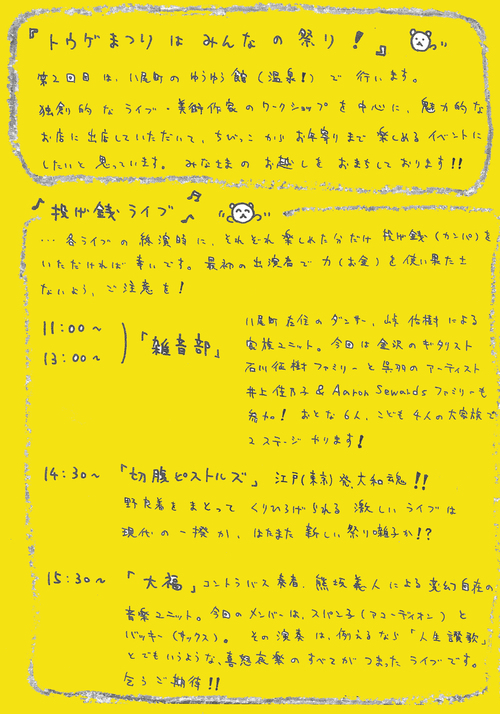 『トウゲまつりはみんなの祭り!』
第2回目は、八尾町のゆうゆう館(温泉!)で行います。
独創的なライブ・美術作家のワークショップを中心に、魅力的な
お店に出店していただいて、ちびっこからお年寄りまで楽しめるイベントに
したいと思っています。みなさまのお越しをおまちしております!!
♪投げ銭ライブ♪
… 各ライブの終演時に、それぞれ楽しめた分だけ投げ銭(カンパ)を
いただければ幸いです。最初の出演者で力(お金)を使い果たさ
ないよう、ご注意を!
11:00〜
13:00〜
「雑音部」
八尾町在住のダンサー、峠佑樹による
家族ユニット。今回は金沢のギタリスト
石川征樹ファミリーと呉羽のアーティスト
井上佳乃子 & Aaron Sewardsファミリーも
参加! おとな6人、こども4人の大家族で
2ステージやります!
14:30〜 「切腹ピストルズ」 江戸(東京)発、大和魂!!
野良着をまとってくりひろげられる激しいライブは
現代の一揆か、はたまた新しい祭り囃子か!?
15:30〜 「大福」コントラバス奏者、熊坂義人による変幻自在の
音楽ユニット。今回のメンバーは、スパン子(アコーディオン)と
バッキー(サックス)。その演奏は、例えるなら「人生讃歌」
とでもいうような、喜怒哀楽のすべてがつまったライブです。
乞うご期待!!